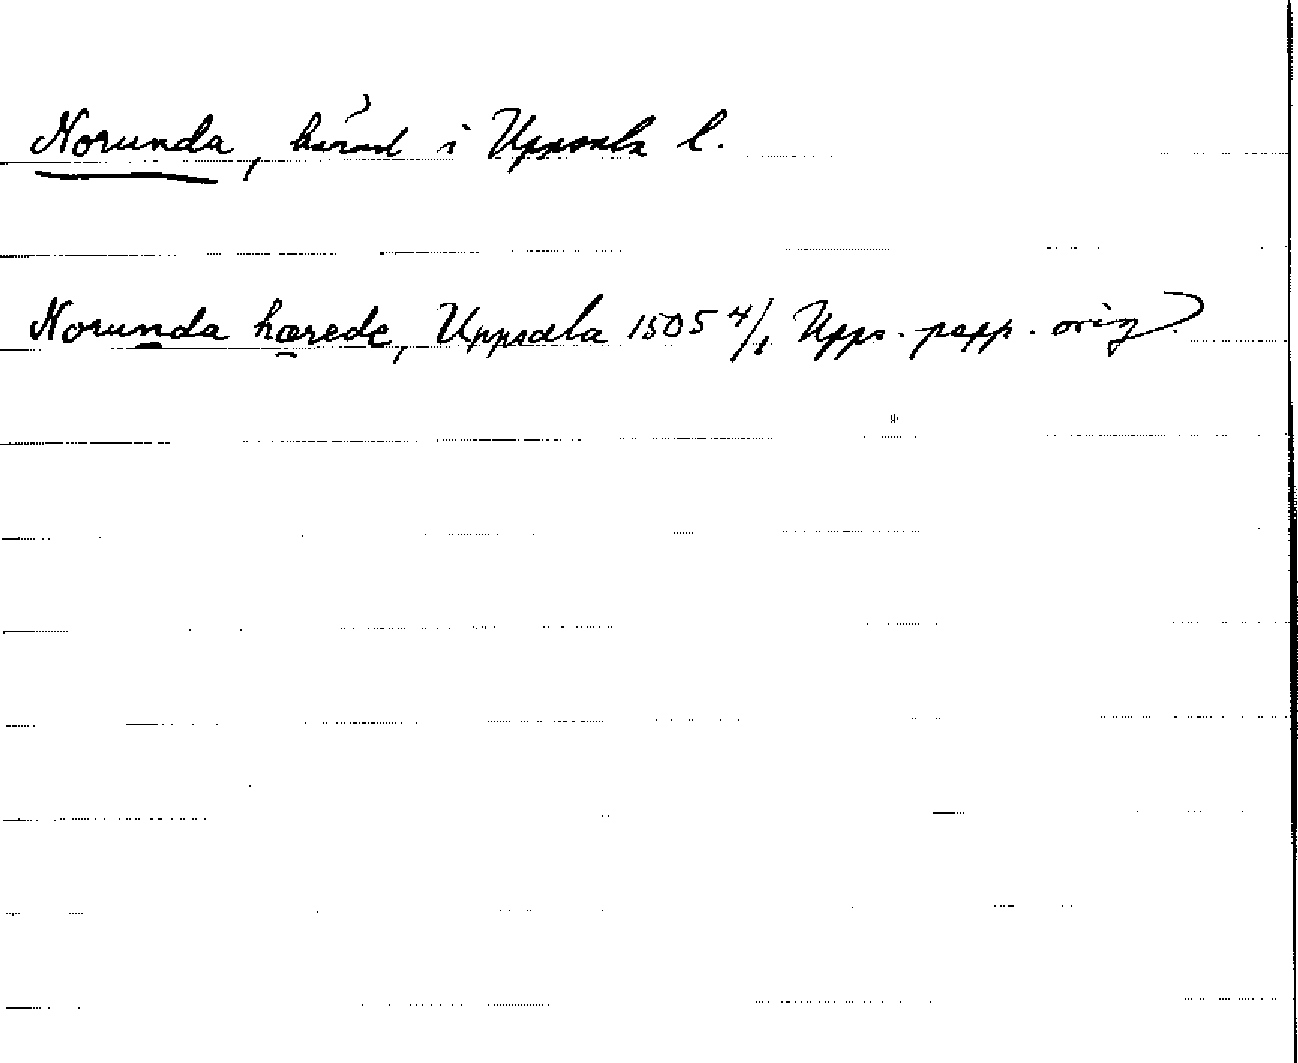 Norunda, härad i Uppsala l.
Norunda hærede, Uppsala 1505 4/1 Upps. papp. orig.